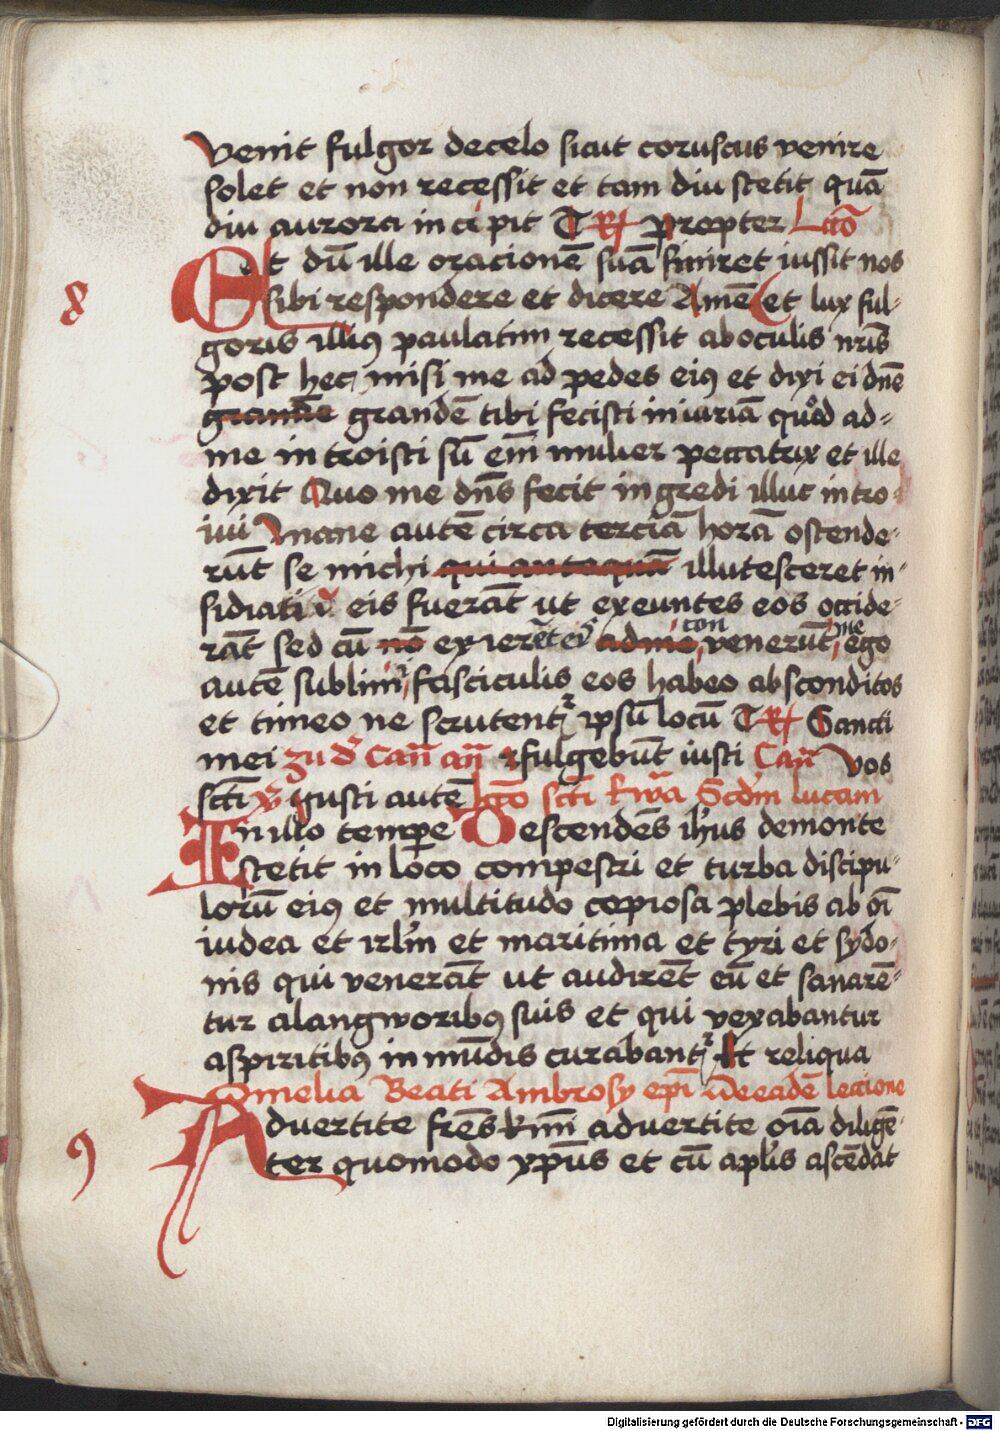 venit fulgor decelo sicut coruscus venire
solet et non recessit et tam diu stetit quā
diu aurora incipit T R Propter Lctō
8 Et dū ille oracionē suā finiret iussit nos
sibi respondere et dicere Amē Et lux ful-
goris illiꝯ paulatim recessit aboculis nr̄is
post hec misi me ad pedes eiꝯ et dixi ei dn̄e
grandē tibi fecisti iniuriā quod ad-
me introisti sū em̄ mulier peccatrix et ille
dixit Quo me dn̄s fecit ingredi illuc intro
iui Mane autē circa terciā horā ostende-
rūt se michi qui antequā illutesceret in-
sidiati eis fuerāt ut exeuntes eos occide-
rāt sed cū nō exierēt ei adme con venerūt me ego
autē sublini fasciculis eos habeo absconditos
et timeo ne scrutent᷑ ipsū locū T R Sancti
mei zu d' Can̄ an̄ Fulgebūt iusti Can̄ vos
sc̄ti gusti autē lc̄o sc̄ti Ewa Scd̄m lucam
In illo tempe Descendēs ih̄us demonte
stetit in loco compestri et turba discipu-
lorū eiꝯ et multitudo copiosa plebis ab oī
iudea et irl̄m et maritima et tyri et sydo-
nis qui venerāt ut audirēt eū et sanarē-
tur alangworibꝯ suis et qui vexabantur
aspiritibꝯ inmūdis curabant᷑ Et reliqua
Omelia Beati Ambrosy ep̄i de eadē leccione
9 Advertite frēs kr̄mi advertite oīa diligē-
ter quomodo xp̄us et cū apl̄is ascēdat
Digitalisierung gefördert durch die Deutsche Forschungsgemeinschaft - DFG